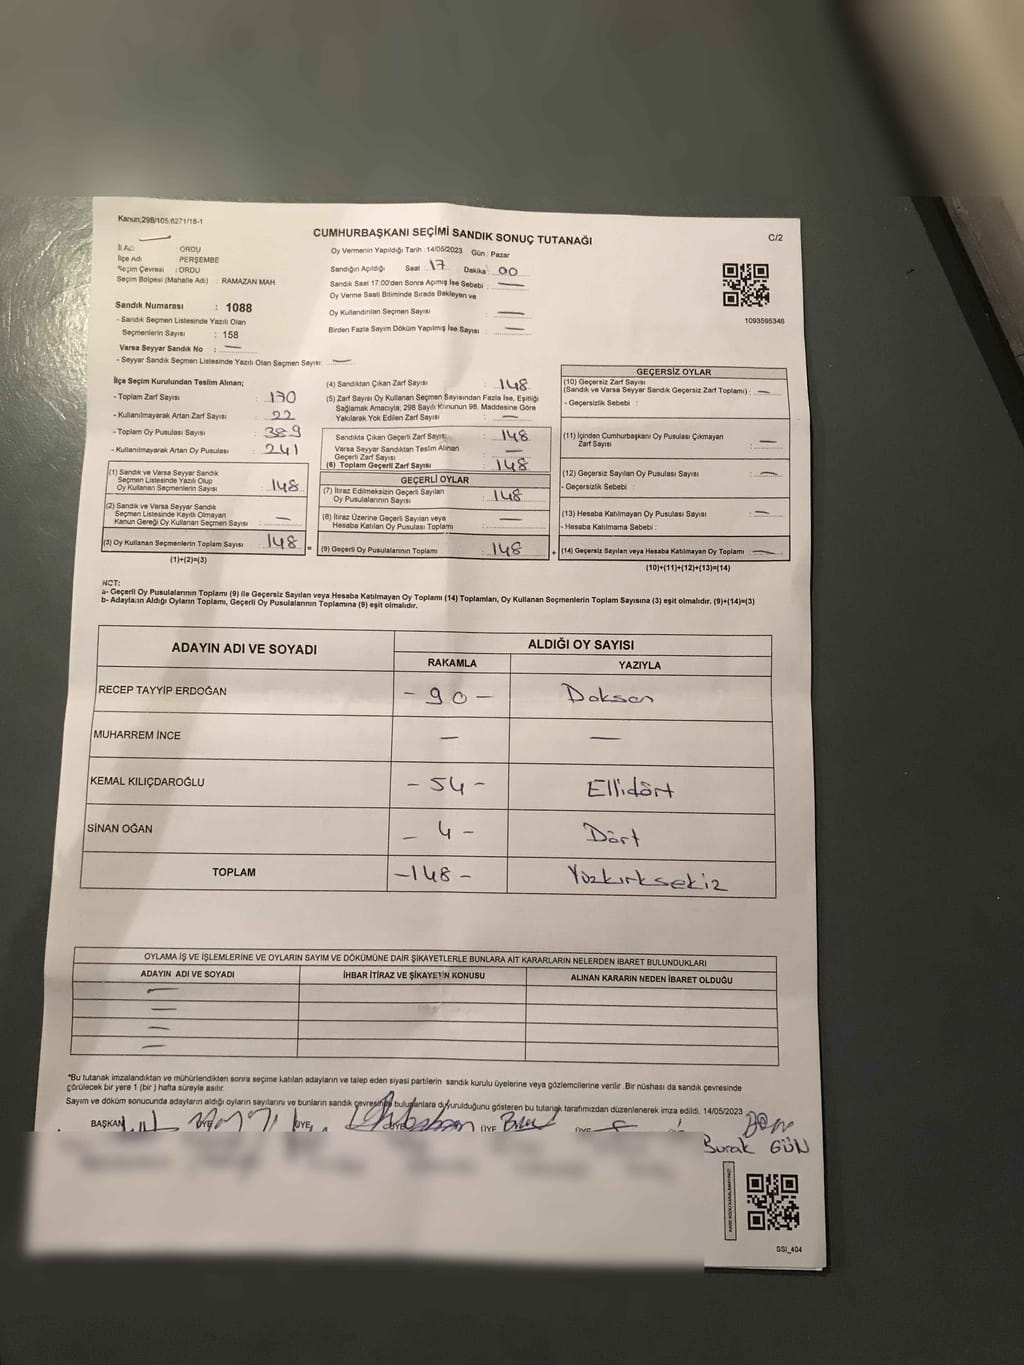 Kanun;298/105,6271/18-1
CUMHURBAŞKANI SEÇİMİ SANDIK SONUÇ TUTANAĞI
C/2
İl Adı ORDU
İlçe Adı PERŞEMBE
Seçim Çevresi : ORDU
Seçim Bölgesi (Mahalle Adı) : RAMAZAN MAH
Oy Vermenin Yapıldığı Tarih : 14/05/2023 Gün : Pazar
Sandığın Açıldığı Saat 17 Dakika 00
Sandık Saat 17:00'den Sonra Açımış İse Sebebi : —
Oy Verme Saati Bitiminde Sırada Bekleyen ve
Oy Kullandırılan Seçmen Sayısı —
Birden Fazla Sayım Döküm Yapılmış İse Sayısı : —
1093595346
Sandık Numarası : 1088
- Sandık Seçmen Listesinde Yazılı Olan
Seçmenlerin Sayısı : 158
Varsa Seyyar Sandık No : —
- Seyyar Sandık Seçmen Listesinde Yazılı Olan Seçmen Sayısı —
İlçe Seçim Kurulundan Teslim Alınan;
- Toplam Zarf Sayısı : 170
- Kullanılmayarak Artan Zarf Sayısı : 22
- Toplam Oy Pusulası Sayısı : 389
- Kullanılmayarak Artan Oy Pusulası : 241
(1) Sandık ve Varsa Seyyar Sandık
Seçmen Listesinde Yazılı Olup
Oy Kullanan Seçmenlerin Sayısı : 148
(2) Sandık ve Varsa Seyyar Sandık
Seçmen Listesinde Kayıtlı Olmayan
Kanun Gereği Oy Kullanan Seçmen Sayısı : —
(3) Oy Kullanan Seçmenlerin Toplam Sayısı 148 =
(1)+(2)=(3)
(4) Sandıktan Çıkan Zarf Sayısı : 148
(5) Zarf Sayısı Oy Kullanan Seçmen Sayısından Fazla İse, Eşitliği
Sağlamak Amacıyla; 298 Sayılı Kanunun 98. Maddesine Göre
Yakılarak Yok Edilen Zarf Sayısı : —
Sandıkta Çıkan Geçerli Zarf Sayısı : 148
Varsa Seyyar Sandıktan Teslim Alınan
Geçerli Zarf Sayısı : —
(6) Toplam Geçerli Zarf Sayısı : 148
GEÇERLİ OYLAR
(7) İtiraz Edilmeksizin Geçerli Sayılan
Oy Pusulalarının Sayısı : 148
(8) İtiraz Üzerine Geçerli Sayılan veya
Hesaba Katılan Oy Pusulası Toplamı : —
(9) Geçerli Oy Pusulalarının Toplamı : 148 +
GEÇERSİZ OYLAR
(10) Geçersiz Zarf Sayısı
(Sandık ve Varsa Seyyar Sandık Geçersiz Zarf Toplamı) : —
- Geçersizlik Sebebi :
(11) İçinden Cumhurbaşkanı Oy Pusulası Çıkmayan
Zarf Sayısı : —
(12) Geçersiz Sayılan Oy Pusulası Sayısı : —
- Geçersizlik Sebebi :
(13) Hesaba Katılmayan Oy Pusulası Sayısı : —
- Hesaba Katılmama Sebebi :
(14) Geçersiz Sayılan veya Hesaba Katılmayan Oy Toplamı : —
(10)+(11)+(12)+(13)=(14)
NOT:
a- Geçerli Oy Pusulalarının Toplamı (9) ile Geçersiz Sayılan veya Hesaba Katılmayan Oy Toplamı (14) Toplamları, Oy Kullanan Seçmenlerin Toplam Sayısına (3) eşit olmalıdır. (9)+(14)=(3)
b- Adayların Aldığı Oyların Toplamı, Geçerli Oy Pusulalarının Toplamına (9) eşit olmalıdır.
ADAYIN ADI VE SOYADI ALDIĞI OY SAYISI
RAKAMLA YAZIYLA
RECEP TAYYİP ERDOĞAN - 90 - Doksan
MUHARREM İNCE — —
KEMAL KILIÇDAROĞLU - 54 - Ellidört
SİNAN OĞAN - 4 - Dört
TOPLAM -148- Yüzkırksekiz
OYLAMA İŞ VE İŞLEMLERİNE VE OYLARIN SAYIM VE DÖKÜMÜNE DAİR ŞİKAYETLERLE BUNLARA AİT KARARLARIN NELERDEN İBARET BULUNDUKLARI
ADAYIN ADI VE SOYADI İHBAR İTİRAZ VE ŞİKAYETİN KONUSU ALINAN KARARIN NEDEN İBARET OLDUĞU
—
—
—
—
*Bu tutanak imzalandıktan ve mühürlendikten sonra seçime katılan adayların ve talep eden siyasi partilerin sandık kurulu üyelerine veya gözlemcilerine verilir. Bir nüshası da sandık çevresinde
görülecek bir yere 1 (bir) hafta süreyle asılır.
Sayım ve döküm sonucunda adayların aldığı oyların sayılarını ve bunların sandık çevresinde bulunanlara duyurulduğunu gösteren bu tutanak tarafımızdan düzenlenerek imza edildi. 14/05/2023
BAŞKAN ÜYE ÜYE ÜYE ÜYE ÜYE
Burak GÜN
SSI_404